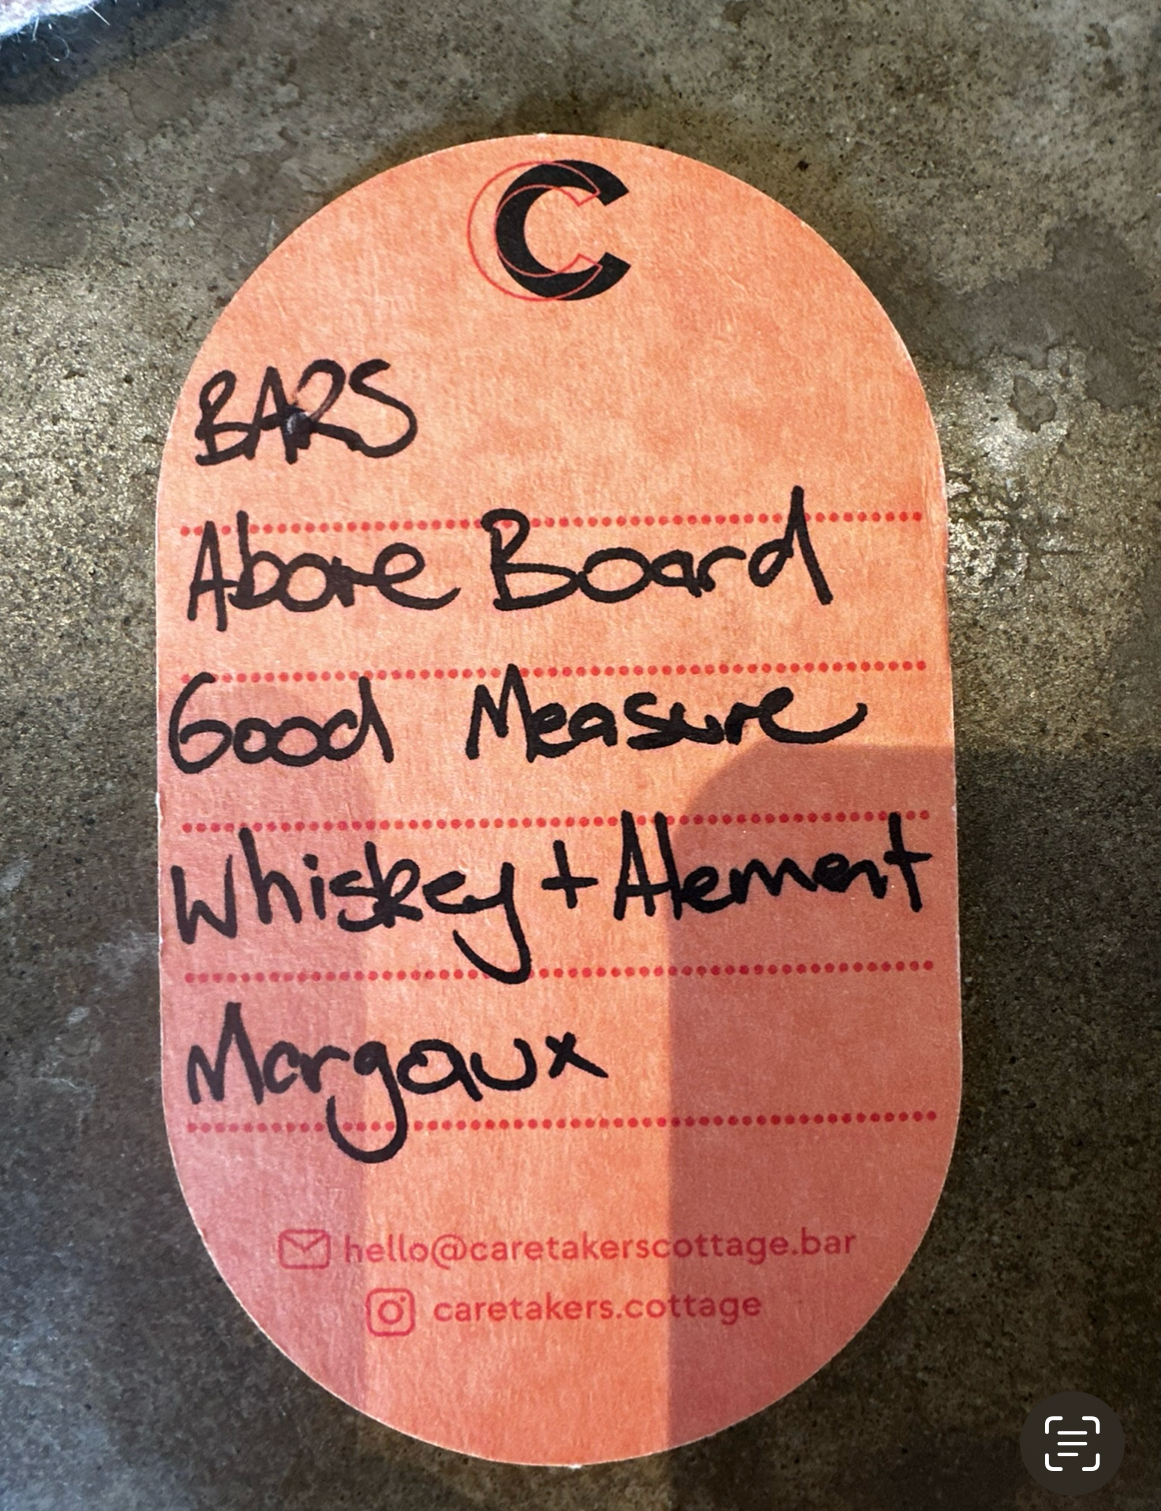 C
BARS
Above Board
Good Measure
Whiskey + Alement
Margaux
hello@caretakerscottage.bar
caretakers.cottage